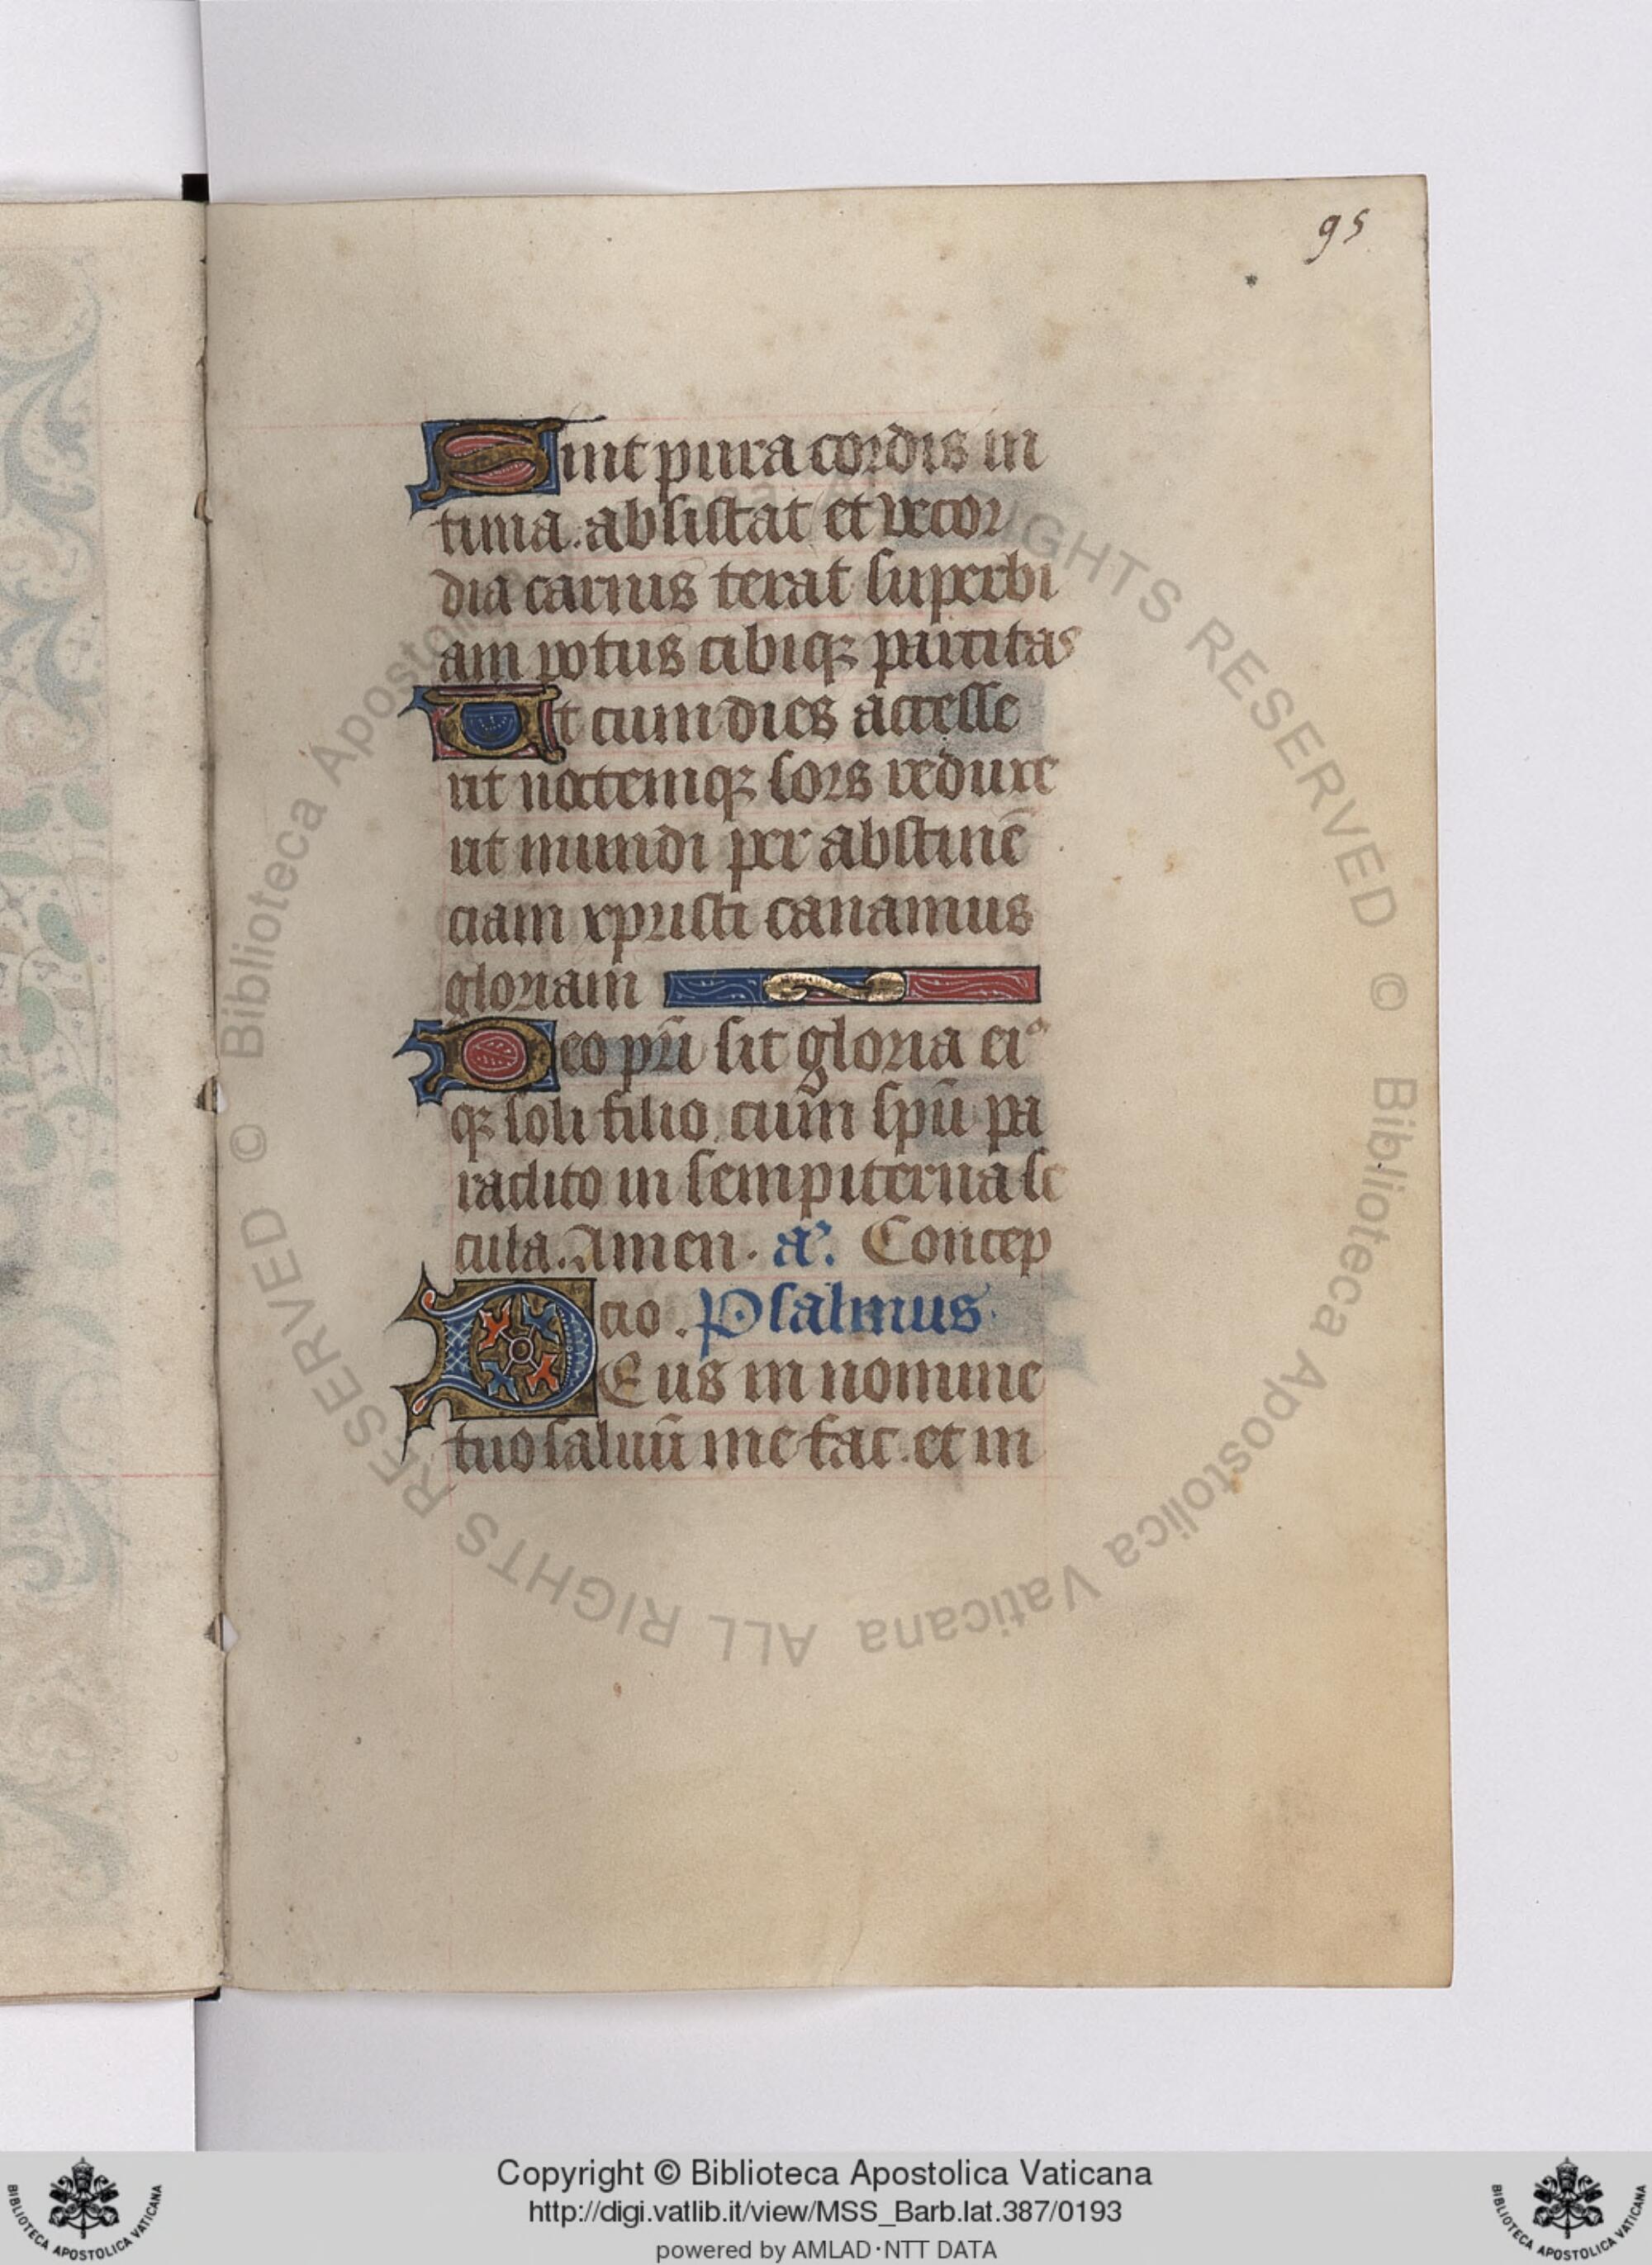 95
Sint pura cordis in
tima. absistat et vecor
dia carnis terat superbi
am potus cibiqꝫ parcitas
Ut cum dies accesse
rit noctemqꝫ sors reduxe
rit mundi per abstinē
ciam xpristi canamus
gloriam
Deo pr̄i sit gloria eiꝰ
qꝫ soli filio. cum sp̄u pa
raclito in sempiterna se
cula. Amen. añ. Concep
cio. Psalmus
DEus in nomine
tuo saluū me fac. et in
© Biblioteca Apostolica Vaticana ALL RIGHTS RESERVED © Biblioteca Apostolica Vaticana ALL RIGHTS RESERVED
Copyright © Biblioteca Apostolica Vaticana
http://digi.vatlib.it/view/MSS_Barb.lat.387/0193
powered by AMLAD·NTT DATA
BIBLIOTECA APOSTOLICA VATICANA
BIBLIOTECA APOSTOLICA VATICANA